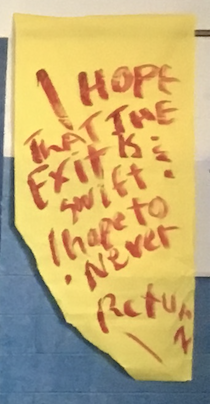 I HOPE
THAT THE
EXIT IS
SWIFT
I hope to
Never
Return